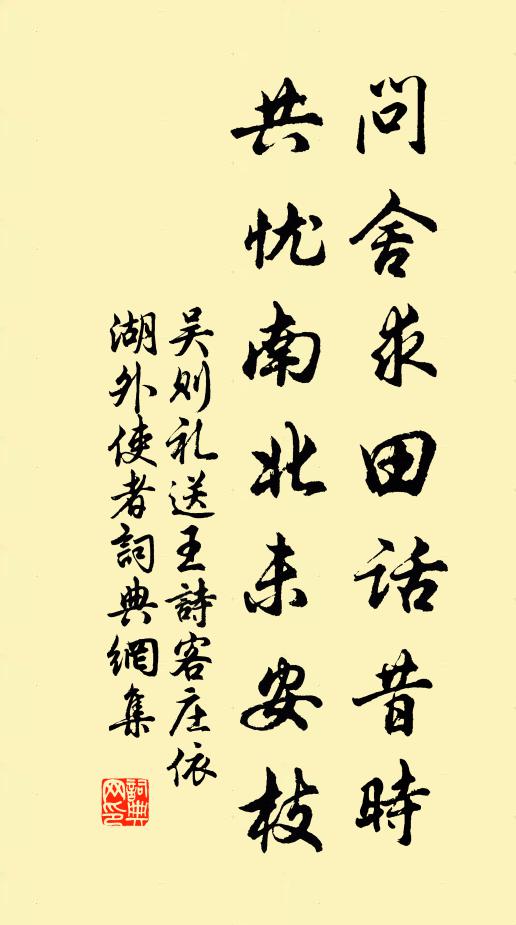 问舍求田话昔時
共忧南北未安枝
吴则礼送王詩客庄依
湖外使者詞典網集
詞典網印